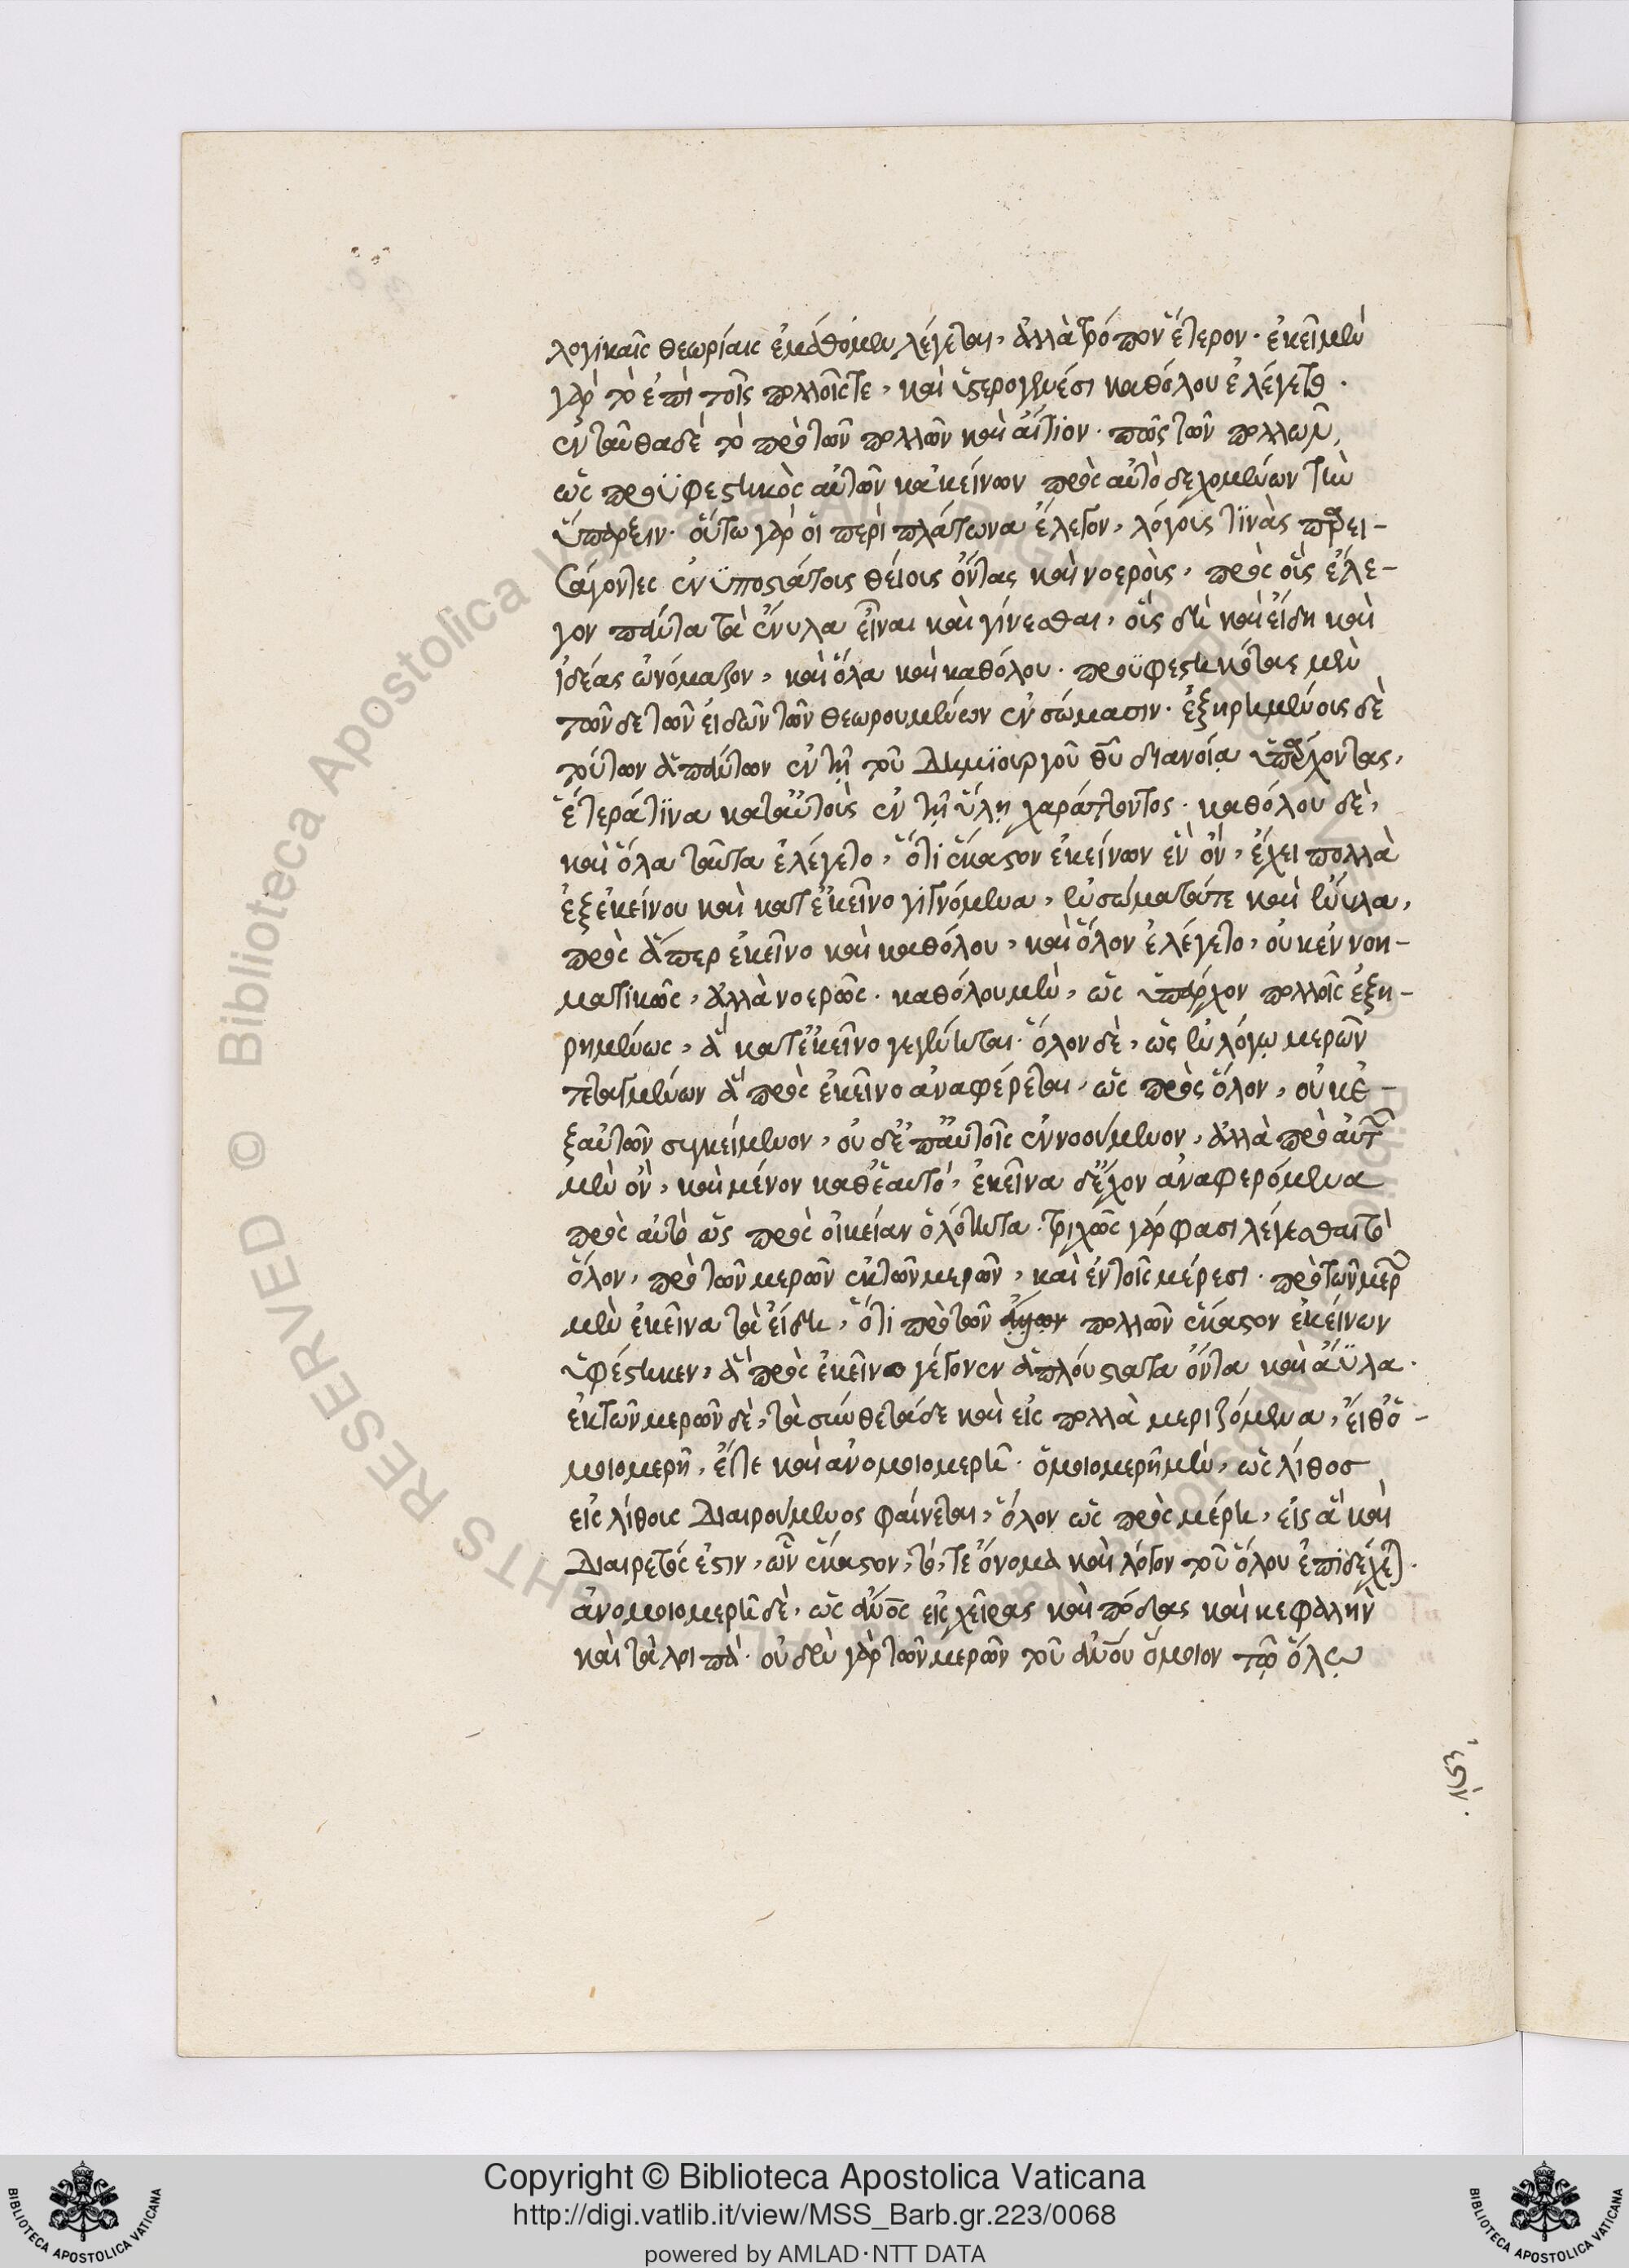 λογικαῖς θεωρίαις ἐμάθομεν λέγεται, ἀλλὰ τρόπον ἕτερον. ἐκεῖ μὲν
γὰρ τὸ ἐπὶ τοῖς πολλοῖς τε, καὶ ὑστερογενέσι καθόλου ἐλέγετο.
ἐνταῦθα δὲ τὸ πρὸ τῶν πολλῶν καὶ αἴτιον. πῶς τῶν πολλῶν,
ὡς προϋφεστικὸς αὐτῶν κἀκείνων πρὸς αὐτὸ δεχομένων τὴν
ὕπαρξιν. οὕτω γὰρ οἱ περὶ πλάτωνα ἔλεγον, λόγοις τϊνὰς παρει-
σάγοντες ἐν ϋποστάτοις θείοις ὄντας καὶ νοεροὶς, πρὸς οἷς ἔλε-
γον πάντα τὰ ἔνυλα εἶναι καὶ γίνεσθαι, οἷς δὴ καὶ εἴδη καὶ
ἰδέας ὠνόμαζον, καὶ ὅλα καὶ καθόλου. προϋφεστηκότας μὲν
τῶνδε τῶν εἰδῶν τῶν θεωρουμένων ἐν σώμασιν. ἐξηρημένοις δὲ
τούτων ἁπάντων ἐν τῇ τοῦ Δημϊουργοῦ θῦ διανοίᾳ ὑπάρχοντας,
ἕτερά τϊνα κατ αὐτοὺς ἐν τῇ ὕλῃ χαράττοντος. καθόλου δὲ,
καὶ ὅλα ταῦτα ἐλέγετο, ὅτι ἕκαστον ἐκείνων ἓν ὂν, ἔχει πολλὰ
ἐξ ἐκείνου καὶ κατ ἐκεῖνο γιγνόμενα, ἐν σώματά τε καὶ ἔνυλα,
πρὸς ἅπερ ἐκεῖνο καὶ καθόλου, καὶ ὅλον ἐλέγετο, οὐκ ἐννοη-
ματικῶς, ἀλλὰ νοερῶς. καθόλου μὲν, ὡς ὑπάρχον πολλοῖς ἐξη-
ρημένως, ἃ κατ ἐκεῖνο γεγένηται. ὅλον δὲ, ὡς ἐν λόγῳ μερῶν
τεταγμένων ἃ πρὸς ἐκεῖνο ἀναφέρεται, ὡς πρὸς ὅλον, οὐκ ἐ-
ξ αὐτῶν συγκείμενον, οὐδ ἐπ αὐτοῖς ἐννοούμενον, ἀλλὰ πρὸ αὐτῶν
μὲν ὂν, καὶ μένον καθ ἑαυτό, ἐκεῖνα δ ἔχον ἀναφερόμενα
πρὸς αὐτὸ ὡς πρὸς οἰκείαν ὁλότητα. τριχῶς γάρ φασι λέγεσθαι τὸ
ὅλον, πρὸ τῶν μερῶν ἐκ τῶν μερῶν, καὶ ἐν τοῖς μέρεσι. πρὸ τῶν μερῶν
μὲν ἐκεῖνα τὰ εἴδη, ὅτι πρὸ τῶν πολλῶν ἕκαστον ἐκείνων
ὑφέστηκεν, ἃ πρὸς ἐκεῖνο γέγονεν ἁπλούστατα ὄντα καὶ ἄϋλα.
ἐκ τῶν μερῶν δὲ, τὰ σύνθετά δε καὶ εἰς πολλὰ μεριζόμενα, εἴθ ὁ-
μοιομερῆ, εἴτε καὶ ἀνομοιομερῆ. ὁμοιομερῆ μὲν, ὡς λίθος
εἰς λίθοις Διαιρούμενος φαίνεται, ὅλον ὡς πρὸς μέρη, εἰς ἃ καὶ
Διαιρετός ἐστιν, ὧν ἕκαστον, τό, τε ὄνομα καὶ λόγον τοῦ ὅλου ἐπϊδέχεται.
ἀνομοιομερῆ δὲ, ὡς ἄνος εἰς χεῖρας καὶ πόδας καὶ κεφαλὴν
καὶ τὰ λοιπά. οὐδὲν γὰρ τῶν μερῶν τοῦ ἀνου ὅμοιον τῷ ὅλῳ
Copyright © Biblioteca Apostolica Vaticana
http://digi.vatlib.it/view/MSS_Barb.gr.223/0068
powered by AMLAD·NTT DATA